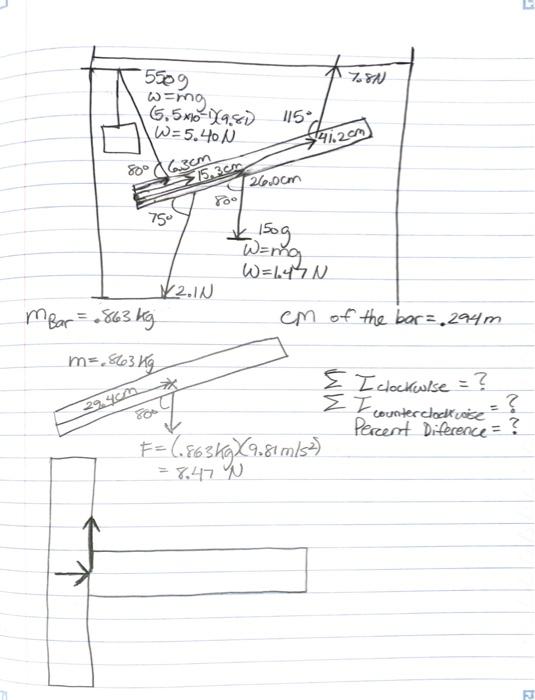 550g
W=mg
(5.5x10⁻¹)(9.81)
W=5.40N
7.8N
115°
41.2cm
80°
6.3cm
15.3cm
26.0cm
80°
75°
150g
W=mg
W=1.47N
2.1N
mBar = .863kg
cm of the bar = .294m
m=.863kg
29.4cm
80°
F=(.863kg)(9.81m/s²)
= 8.47 N
Σ τclockwise = ?
Σ τcounterclockwise = ?
Percent Diference = ?